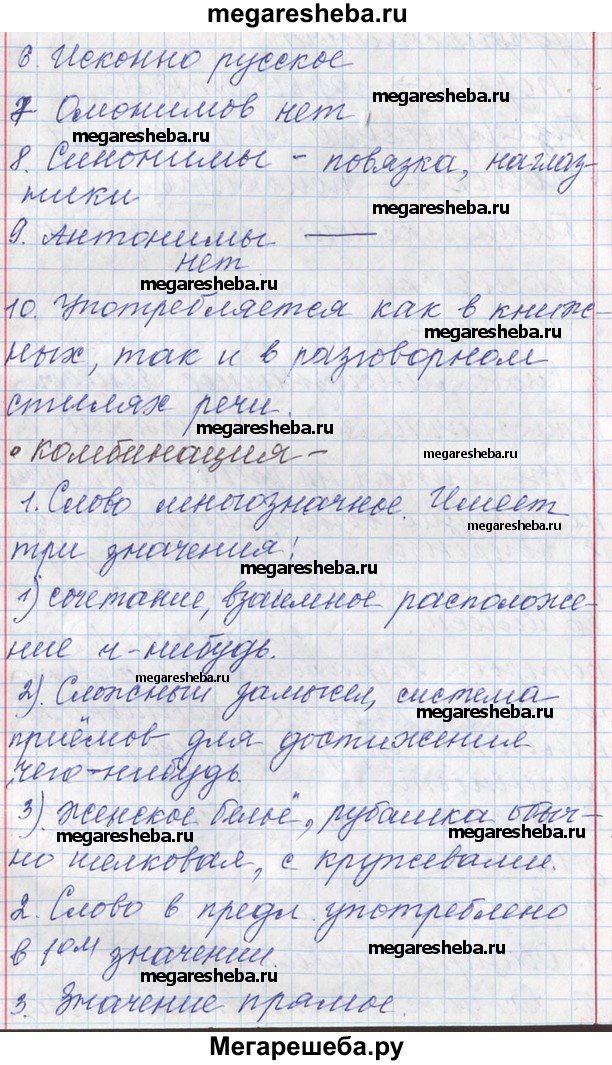 megaresheba.ru
6. Исконно русское
7 Омонимов нет
megaresheba.ru
megaresheba.ru
8. Синонимы - повязка, наглаз-
ники
megaresheba.ru
9. Антонимы —
нет
megaresheba.ru
10. Употребляется как в книж-
megaresheba.ru
ных, так и в разговорном
стилях речи.
megaresheba.ru
• комбинация-
megaresheba.ru
1. Слово многозначное. Имеет
megaresheba.ru
три значения!
megaresheba.ru
1) сочетание, взаимное расположе-
ние ч-нибудь.
2). Сложный замысел, система
megaresheba.ru
приёмов для достижения
чего-нибудь.
3). Женское бельё, рубашка обыч-
megaresheba.ru
megaresheba.ru
но шелковая, с кружевами.
2. Слово в предл. употреблено
в 1ом значении.
megaresheba.ru
megaresheba.ru
3. Значение прямое.
megaresheba.ru
Мегарешеба.ру